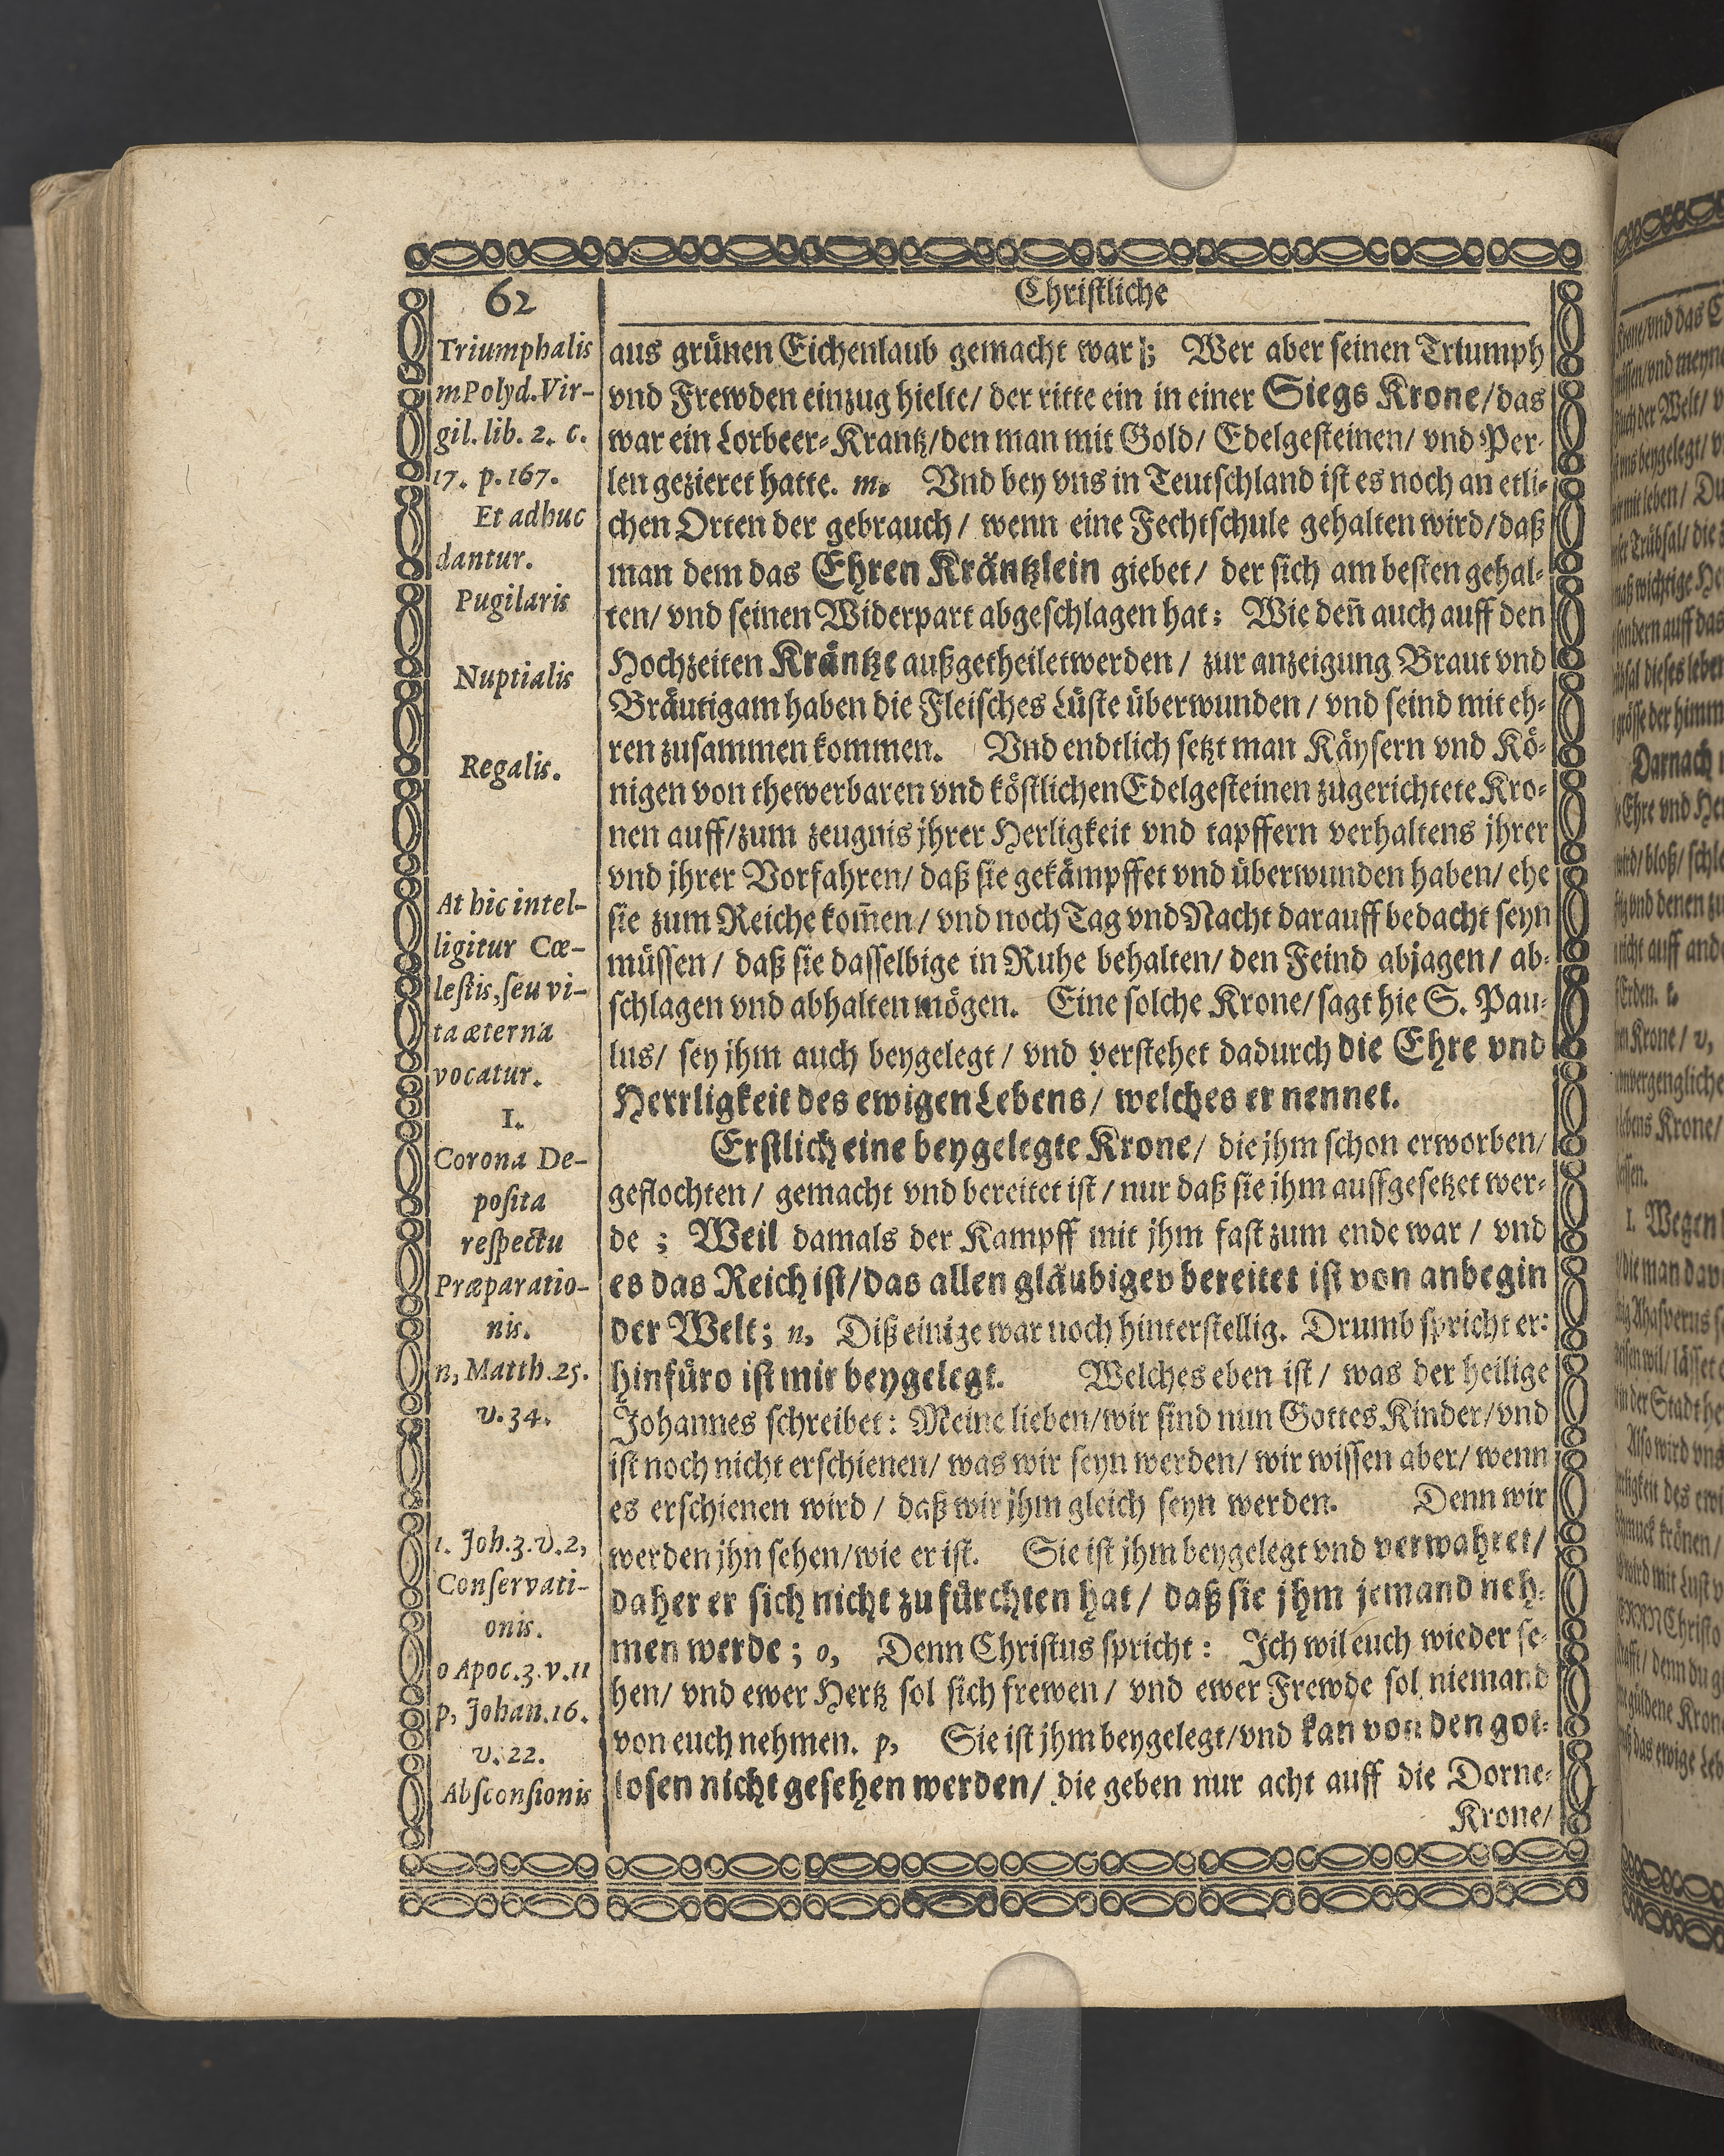 62
Christliche
Triumphalis
m Polyd. Vir-
gil. lib. 2. c.
17. p. 167.
Et adhuc
dantur.
Pugilaris
Nuptialis
Regalis.
At hic intel-
ligitur Cœ-
lestis, seu vi-
ta æterna
vocatur.
I.
Corona De-
posita
respectu
Præparatio-
nis.
n, Matth. 25.
v. 34.
1. Joh. 3. v. 2,
Conservati-
onis.
o Apoc. 3. v. 11
p, Johan. 16.
v. 22.
Absconsionis
aus grünen Eichenlaub gemacht war; Wer aber seinen Triumph
vnd Frewden einzug hielte/ der ritte ein in einer Siegs Krone/ das
war ein Lorbeer-Krantz/ den man mit Gold/ Edelgesteinen/ vnd Per-
len gezieret hatte. m. Vnd bey vns in Teutschland ist es noch an etli-
chen Orten der gebrauch/ wenn eine Fechtschule gehalten wird/ daß
man dem das Ehren Kräntzlein giebet/ der sich am besten gehal-
ten/ vnd seinen Widerpart abgeschlagen hat: Wie deñ auch auff den
Hochzeiten Kräntze außgetheilet werden/ zur anzeigung Braut vnd
Bräutigam haben die Fleisches Lüste überwunden/ vnd seind mit eh-
ren zusammen kommen. Vnd endtlich setzt man Käysern vnd Kö-
nigen von thewerbaren vnd köstlichen Edelgesteinen zugerichtete Kro-
nen auff/ zum zeugnis jhrer Herligkeit vnd tapffern verhaltens jhrer
vnd jhrer Vorfahren/ daß sie gekämpffet vnd überwunden haben/ ehe
sie zum Reiche kom̃en/ vnd noch Tag vnd Nacht darauff bedacht seyn
müssen/ daß sie dasselbige in Ruhe behalten/ den Feind abjagen/ ab-
schlagen vnd abhalten mögen. Eine solche Krone/ sagt hie S. Pau-
lus/ sey jhm auch beygelegt/ vnd verstehet dadurch die Ehre vnd
Herrligkeit des ewigen Lebens/ welches er nennet.
Erstlich eine beygelegte Krone/ die jhm schon erworben/
geflochten/ gemacht vnd bereitet ist/ nur daß sie jhm auffgesetzet wer-
de ; Weil damals der Kampff mit jhm fast zum ende war/ vnd
es das Reich ist/ das allen gläubigen bereitet ist von anbegin
der Welt; n, Diß einige war noch hinterstellig. Drumb spricht er:
hinfüro ist mir beygelegt. Welches eben ist/ was der heilige
Johannes schreibet: Meine lieben/ wir sind nun Gottes Kinder/ vnd
ist noch nicht erschienen/ was wir seyn werden/ wir wissen aber/ wenn
es erschienen wird/ daß wir jhm gleich seyn werden. Denn wir
werden jhn sehen/ wie er ist. Sie ist jhm beygelegt vnd verwahret/
daher er sich nicht zu fürchten hat/ daß sie jhm jemand neh-
men werde; o, Denn Christus spricht: Ich wil euch wieder se-
hen/ vnd ewer Hertz sol sich frewen/ vnd ewer Frewde sol niemand
von euch nehmen. p, Sie ist jhm beygelegt/ vnd kan von den got-
losen nicht gesehen werden/ die geben nur acht auff die Dorne-
Krone/